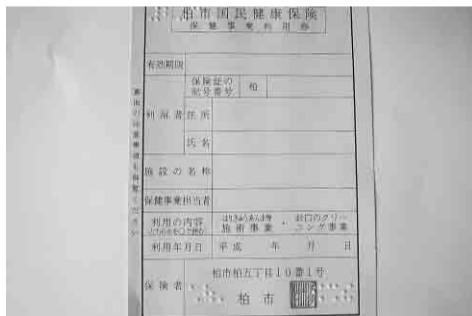 柏市国民健康保険
保健事業利用券
有効期限
保険証の
記号番号
柏
利用者
住所
氏名
施設の名称
保健事業担当者
利用の内容
はりきゅうあんま等
施術事業
・
歯口のクリー
ニング事業
利用年月日
平成 年 月 日
保険者
柏市柏五丁目10番1号
柏市